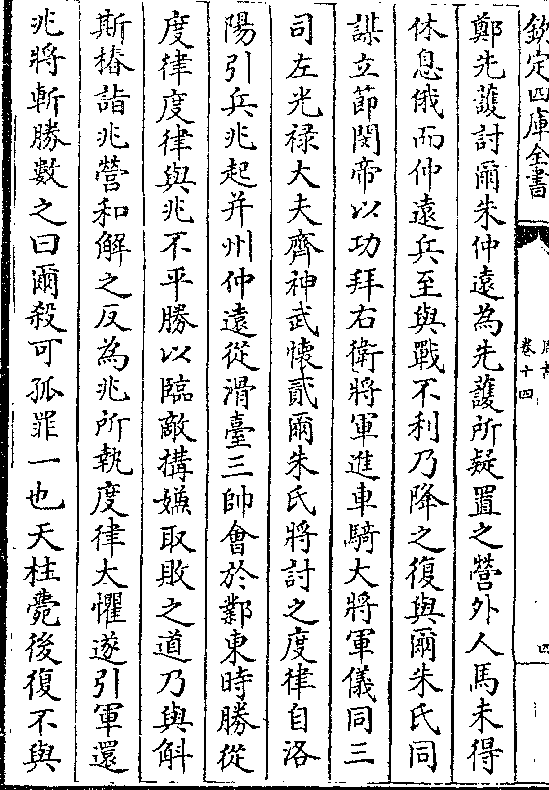 欽定四庫全書
卷十四
四
鄭先䕶討爾朱仲遠為先䕶所疑置之營外人馬未得
休息俄而仲遠兵至與戰不利乃降之復與爾朱氏同
謀立節閔帝以功拜右衛將軍進車騎大將軍儀同三
司左光禄大夫齊神武懷貳爾朱氏將討之度律自洛
陽引兵兆起并州仲遠從滑臺三帥會於鄴東時勝從
度律度律與兆不平勝以臨敵搆嫌取敗之道乃與斛
斯椿詣兆營和解之反為兆所執度律大懼遂引軍還
兆將斬勝數之曰爾殺可孤罪一也天柱薨後復不與